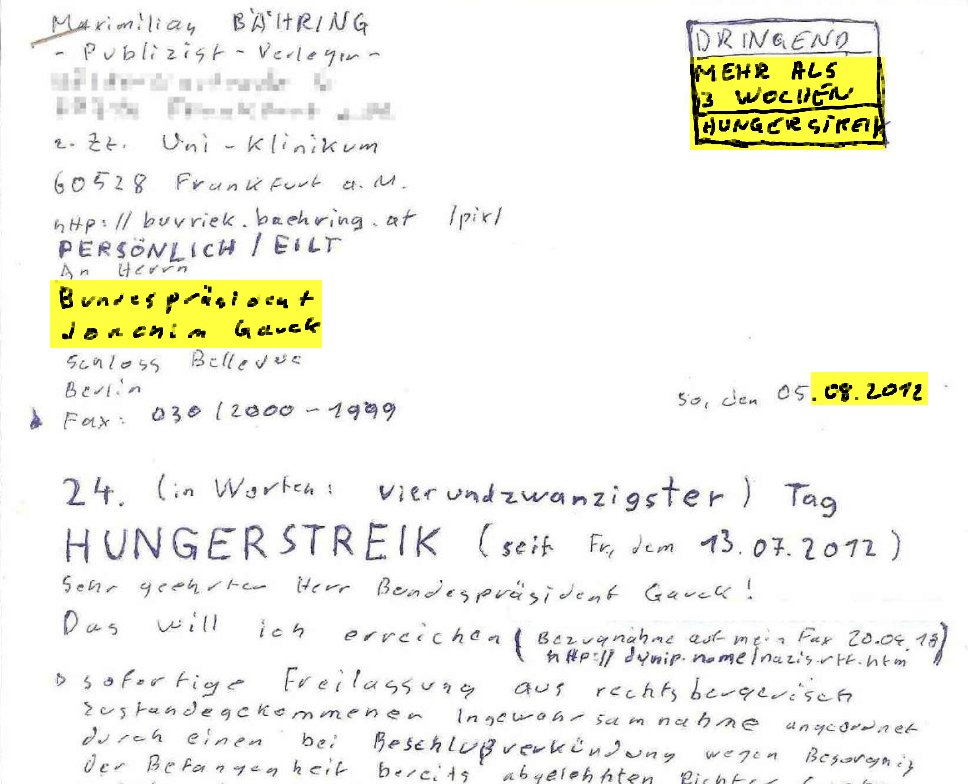 Maximilian BÄHRING
- Publizist - Verleger -
z. Zt. Uni-Klinikum
60528 Frankfurt a.M.
http://buvriek.baehring.at /pix/
PERSÖNLICH / EILT
An Herrn
Bundespräsident
Joachim Gauck
Schloss Bellevue
Berlin
Fax: 030/2000-1999
DRINGEND
MEHR ALS
3 WOCHEN
HUNGERSTREIK
So, den 05.08.2012
24. (in Worten: vierundzwanzigster) Tag
HUNGERSTREIK (seit Fr, dem 13.07.2012)
Sehr geehrter Herr Bundespräsident Gauck!
Das will ich erreichen (Bezugnahme auf mein Fax
http://dynip.name/nazis.rtf.htm)
▷ sofortige Freilassung aus rechtsbeugerisch
zustandegekommenen Ingewahrsamnahme angeordnet
durch einen bei Beschlußverkündung wegen Besorgnis
der Befangenheit bereits abgelehnten Richter